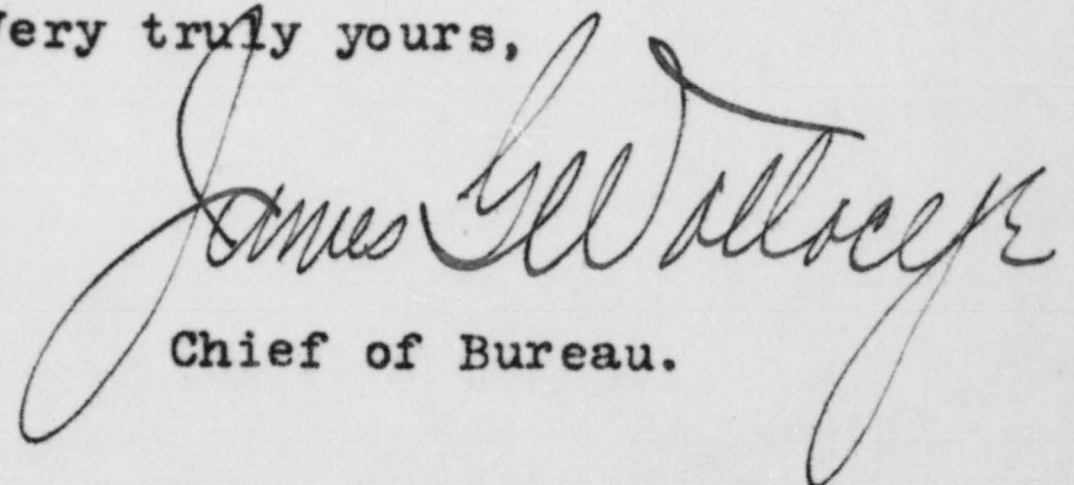 Very truly yours,
James G Wallace Jr
Chief of Bureau.